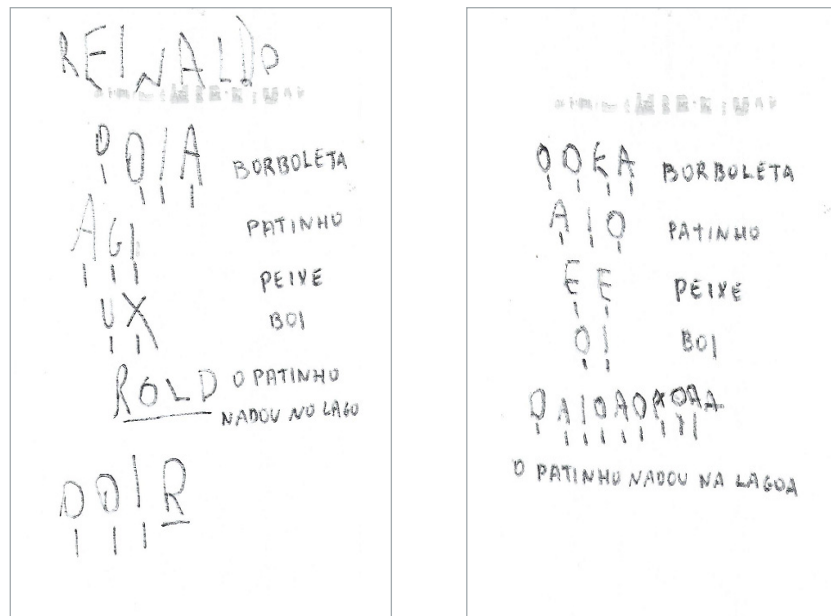 REINALDO
OOIA BORBOLETA
AGI PATINHO
PEIXE
UX BOI
ROLD O PATINHO
NADOU NO LAGO
OOIR
OOKA BORBOLETA
AIO PATINHO
EE PEIXE
OI BOI
OAIOAOAOAA
O PATINHO NADOU NA LAGOA